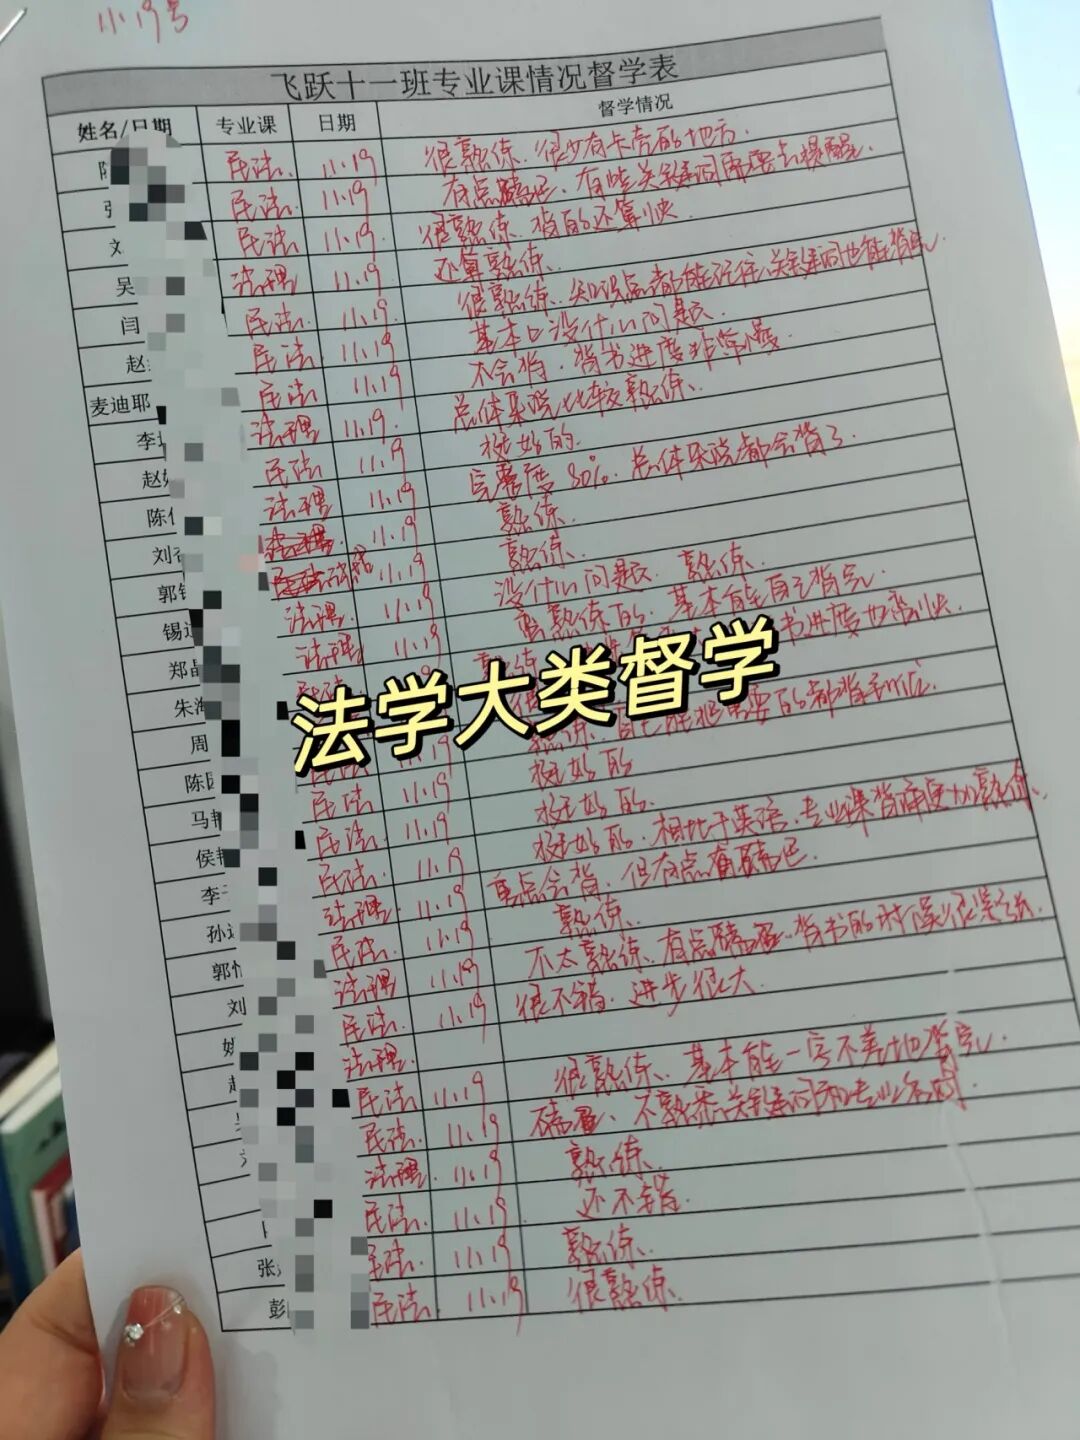 11.19号
飞跃十一班专业课情况督学表
姓名/日期 专业课 日期 督学情况
民法 11.19 很熟练、很少有卡壳的地方
民法 11.19 有点磕巴、有些关键词需要去提醒
刘 民法 11.19 很熟练、背的还算快
吴 法理 11.19 还算熟练
闫 民法 11.19 很熟练、知识点都能记住、关键词也能背
赵 民法 11.19 基本上没什么问题
麦迪耶 民法 11.19 不会背、背书进度非常慢
李 法理 11.19 总体来说比较熟练
赵 民法 11.19 挺好的
陈 法理 11.19 完整度80%、总体来说都会背了
刘 法理 11.19 熟练
郭 11.19 熟练
锡 法理 11.19 没什么问题、熟练
郑 法理 11.19 蛮熟练的、基本能自己背完
朱海 民法 熟练 书进度也蛮快
周
陈 民法 11.19 熟练、需要的都背到位
马 民法 11.19 挺好的
侯 民法 11.19 挺好的
李 民法 11.19 挺好的、相比于英语、专业课背诵更加熟练
孙 法理 11.19 重点会背、但有点磕巴
郭 民法 11.19 熟练
刘 法理 11.19 不太熟练、有点磕巴、背书的时候很紧张
姚 民法 11.19 很不错、进步很大
赵 法理
民法 11.19 很熟练、基本能一字不差地背完
民法 11.19 磕巴、不熟悉关键词和专业名词
法理 11.19 熟练
民法 11.19 还不错
张 民法 11.19 熟练
彭 民法 11.19 很熟练
法学大类督学